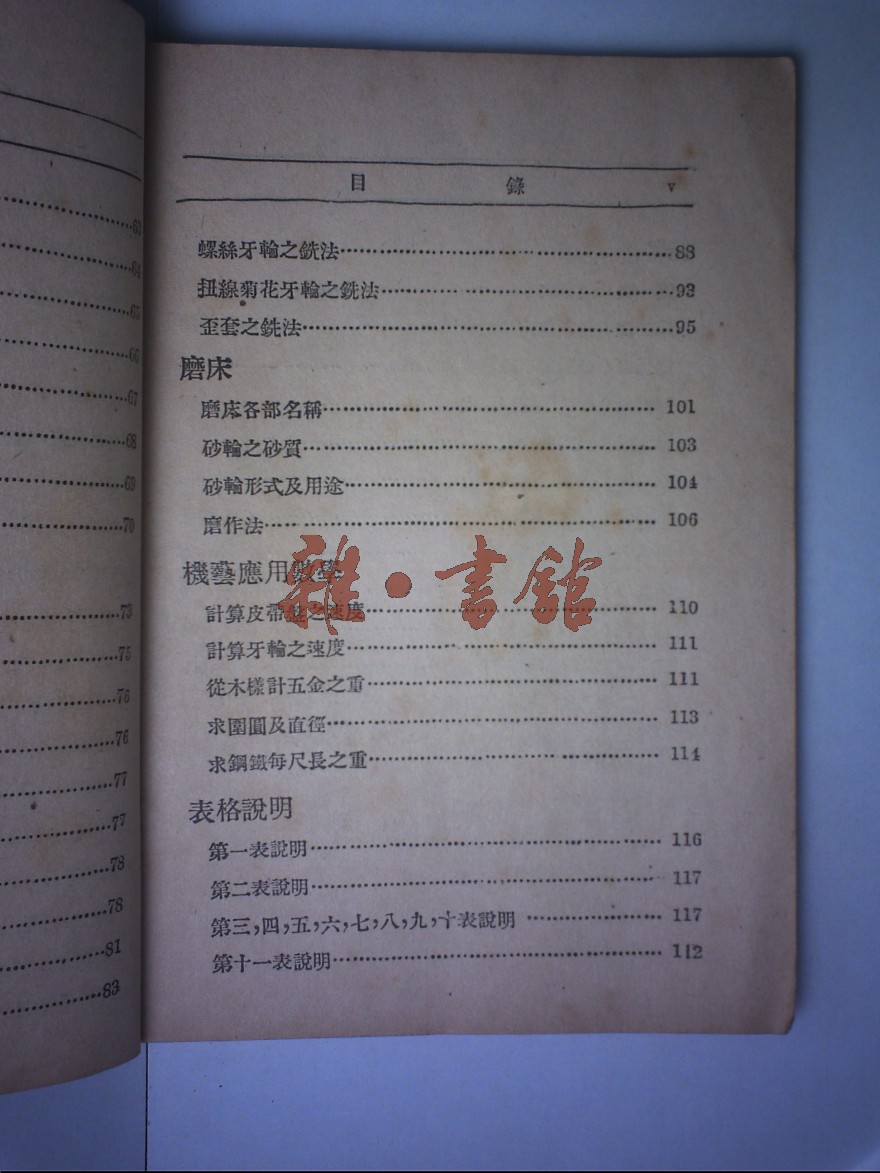 63
64
65
66
67
68
69
70
73
75
76
76
77
77
78
78
81
83
目 錄 v
螺絲牙輪之銑法 88
扭線菊花牙輪之銑法 93
歪套之銑法 95
磨床
磨床各部名稱 101
砂輪之砂質 103
砂輪形式及用途 104
磨作法 106
機藝應用數學
計算皮帶盤之速度 110
計算牙輪之速度 111
從木樣計五金之重 111
求圍圓及直徑 113
求鋼鐵每尺長之重 114
表格說明
第一表說明 116
第二表說明 117
第三,四,五,六,七,八,九,十表說明 117
第十一表說明 112
雜·書館